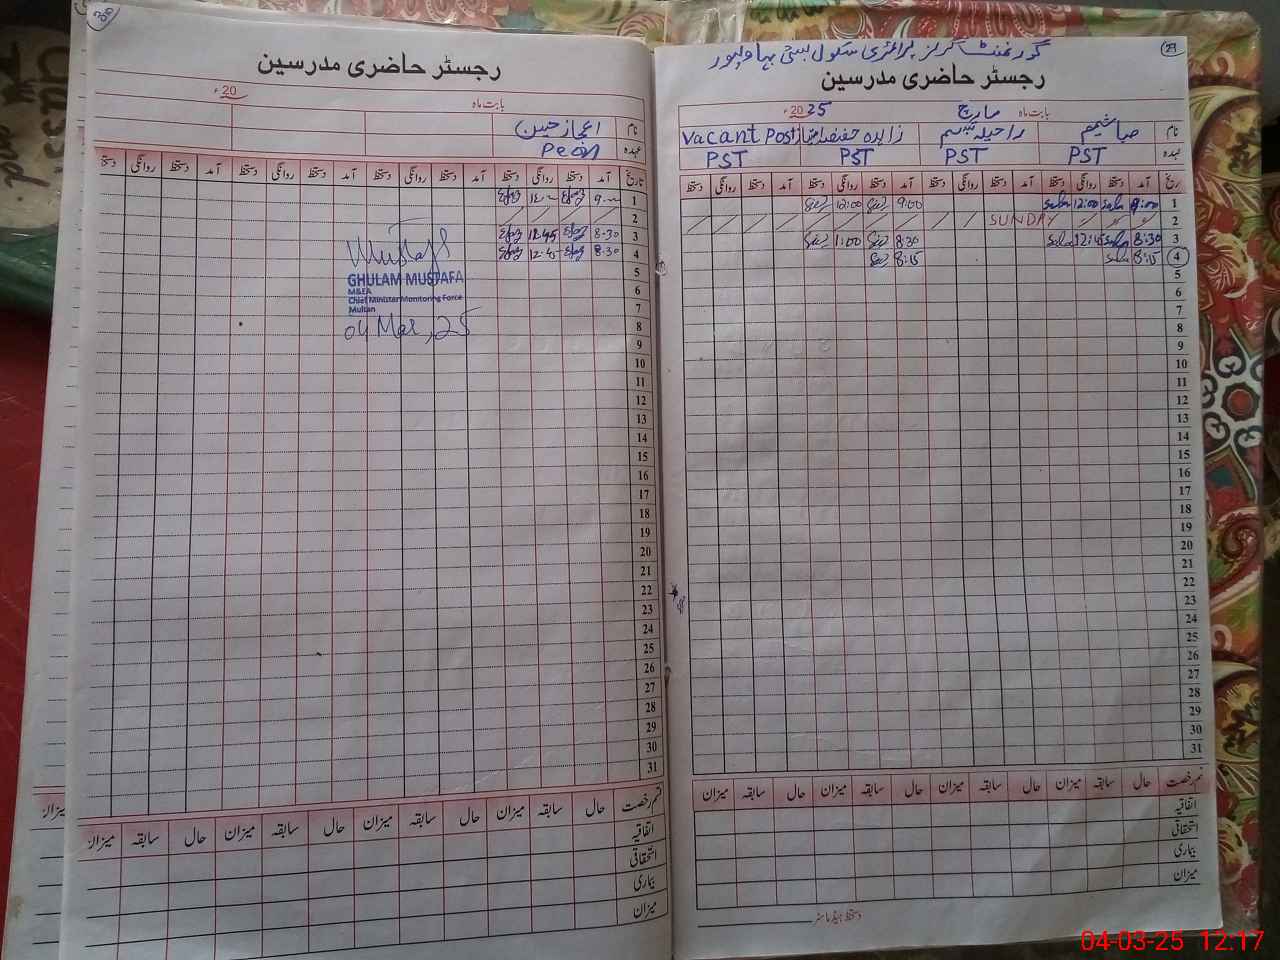 گورنمنٹ گرلز پرائمری سکول بستی بہاولپور
29
رجسٹر حاضری مدرسین
بابت ماہ مارچ 2025ء
نام صبا شمیم راحیلہ زاہدہ Vacant Post
عہدہ PST PST PST PST
تاریخ آمد دستخط روانگی دستخط آمد دستخط روانگی دستخط آمد دستخط روانگی دستخط آمد دستخط روانگی دستخط
1 9:00 12:00 9:00 12:00
2 SUNDAY
3 8:30 12:45 8:30 1:00
4 8:15 8:15
5
6
7
8
9
10
11
12
13
14
15
16
17
18
19
20
21
22
23
24
25
26
27
28
29
30
31
قسم رخصت حال سابقہ میزان حال سابقہ میزان حال سابقہ میزان حال سابقہ میزان
اتفاقیہ
استحقاقی
بیماری
میزان
دستخط ہیڈماسٹر
30
رجسٹر حاضری مدرسین
بابت ماہ 20ء
نام اعجاز حسین
عہدہ Peon
تاریخ آمد دستخط روانگی دستخط آمد دستخط روانگی دستخط آمد دستخط روانگی دستخط آمد دستخط روانگی دستخط
1
2
3 8-30 12:45
4 8-30 12:45
5
6
7
8
9
10
11
12
13
14
15
16
17
18
19
20
21
22
23
24
25
26
27
28
29
30
31
Mustafa
GHULAM MUSTAFA
M&EA
Chief Minister Monitoring Force
Multan
04 Mar, 25
قسم رخصت حال سابقہ میزان حال سابقہ میزان حال سابقہ میزان حال سابقہ میزان
اتفاقیہ
استحقاقی
بیماری
میزان
04-03-25 12:17